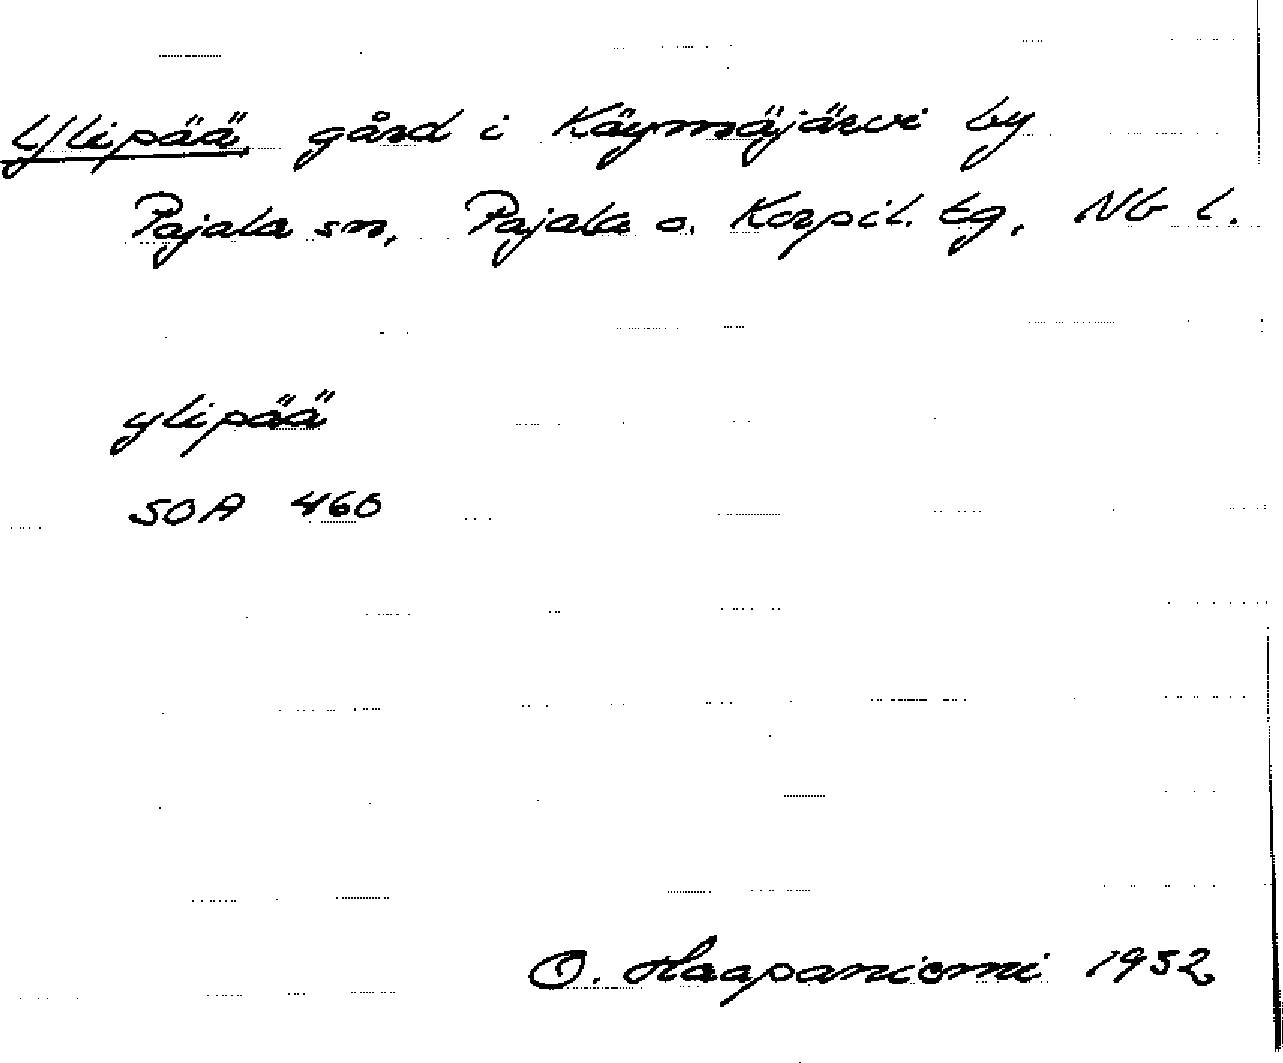 Ylipää gård i Käymäjärvi by
Pajala sn, Pajala o. Korpil. tg, Nb l.
ylipää
SOA 460
O. Haapaniemi 1952